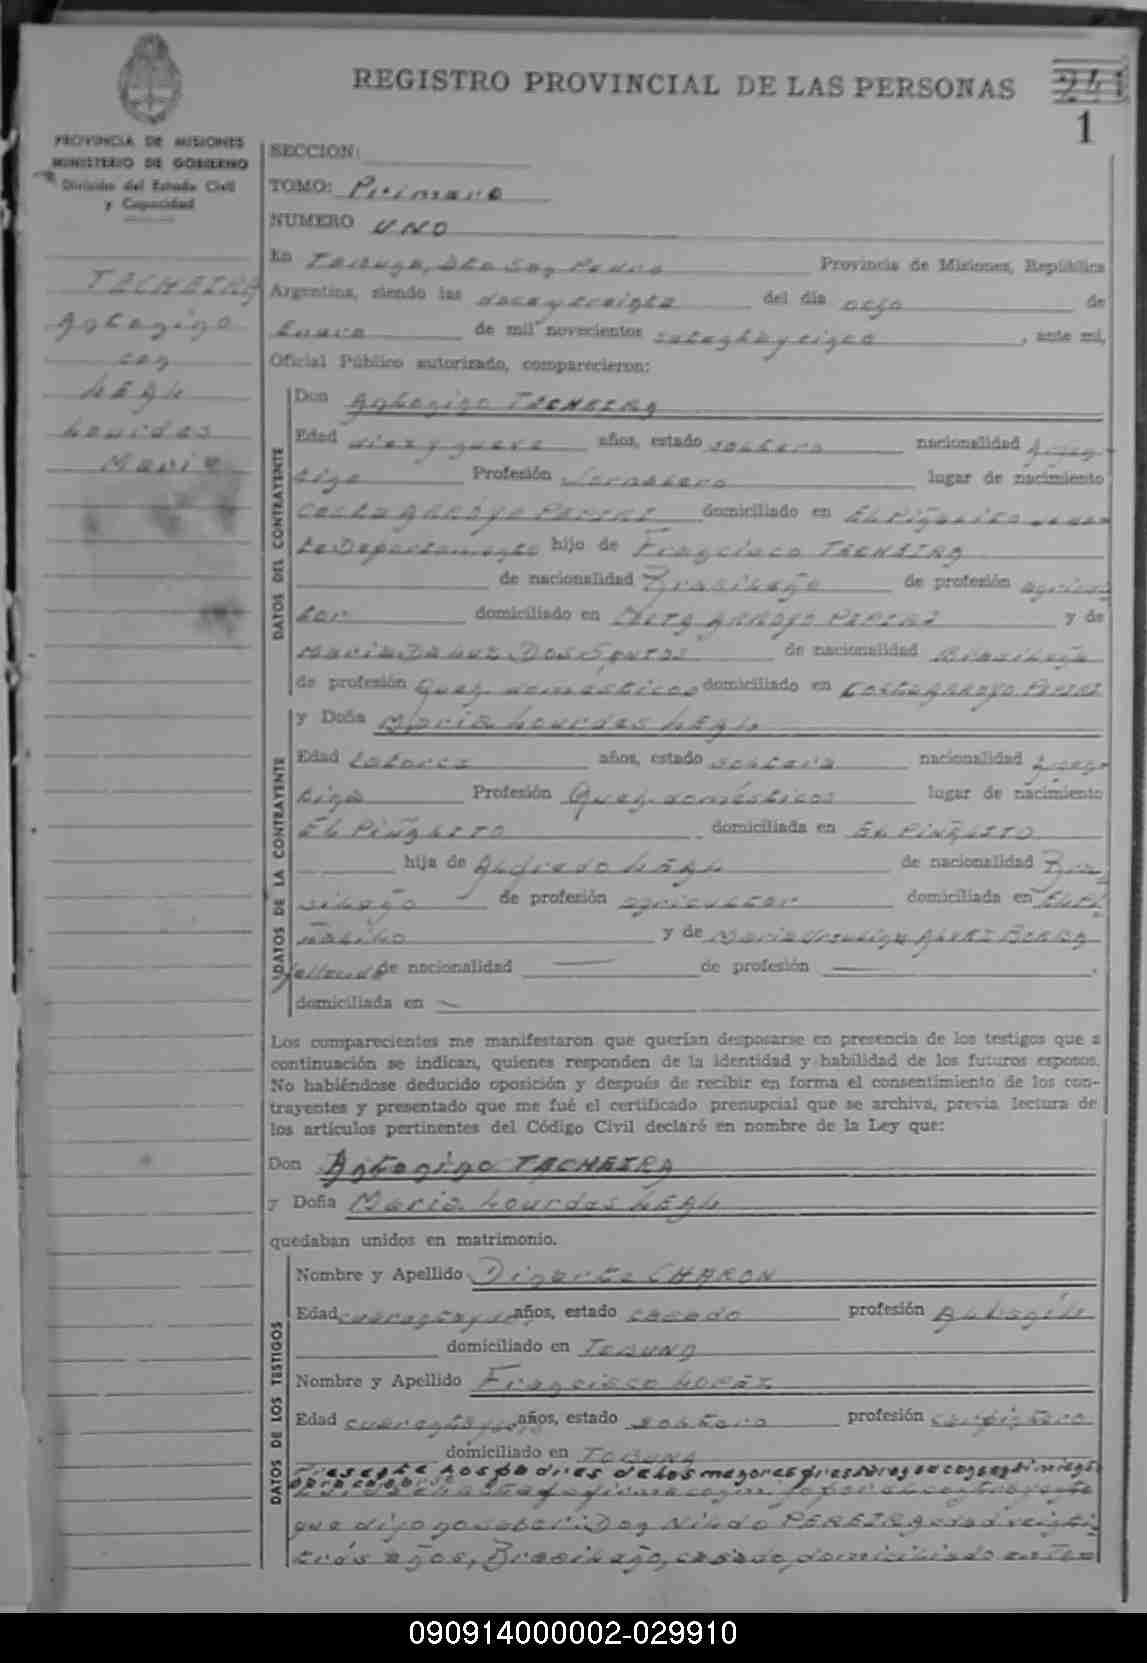 REGISTRO PROVINCIAL DE LAS PERSONAS
241
1
PROVINCIA DE MISIONES
MINISTERIO DE GOBIERNO
División del Estado Civil
y Capacidad
TACHEIRA
Antonino
con
LEAL
Lourdes
Maria
SECCION:
TOMO: Primero
NUMERO UNO
En Tobuna, Dto San Pedro Provincia de Misiones, República
Argentina, siendo las doce y treinta del día ocho de
Enero de mil novecientos setenta y cinco, ante mi,
Oficial Público autorizado, comparecieron:
DATOS DEL CONTRAYENTE
Don Antonino TACHEIRA
Edad diez y nueve años, estado soltero nacionalidad Argen-
tina Profesión Jornalero lugar de nacimiento
Costa ARROYO PEPIRI domiciliado en EL Piñalito de es-
te Departamento hijo de Francisco TACHEIRA
de nacionalidad Brasileño de profesión agricul
tor domiciliado en Costa ARROYO PEPIRI y de
Maria DA LUZ DOS SANTOS de nacionalidad Brasileña
de profesión Queh. domésticos domiciliado en Costa ARROYO PEPIRI
DATOS DE LA CONTRAYENTE
y Doña Maria Lourdes LEAL
Edad catorce años, estado soltera nacionalidad Argen-
tina Profesión Queh. domésticos lugar de nacimiento
EL PIÑALITO domiciliada en EL PIÑALITO
hija de Alfredo LEAL de nacionalidad Bra-
sileño de profesión agricultor domiciliada en El Pi
ñalito y de Maria
fallecida de nacionalidad — de profesión —
domiciliada en —
Los comparecientes me manifestaron que querían desposarse en presencia de los testigos que a
continuación se indican, quienes responden de la identidad y habilidad de los futuros esposos.
No habiéndose deducido oposición y después de recibir en forma el consentimiento de los con-
trayentes y presentado que me fué el certificado prenupcial que se archiva, previa lectura de
los artículos pertinentes del Código Civil declaré en nombre de la Ley que:
Don Antonino TACHEIRA
y Doña Maria Lourdes LEAL
quedaban unidos en matrimonio.
DATOS DE LOS TESTIGOS
Nombre y Apellido Dinarte CHARON
Edad cuarenta y años, estado casado profesión Albañil
domiciliado en TOBUNA
Nombre y Apellido Francisco LOPEZ
Edad cuarenta y años, estado soltero profesión carpintero
domiciliado en TOBUNA
Presente los padres de los menores prestaron su consentimiento
que dijo no saber: Don Nildo PEREIRA edad veinti
trés años, Brasileño, casado, domiciliado en Tobu
090914000002-029910